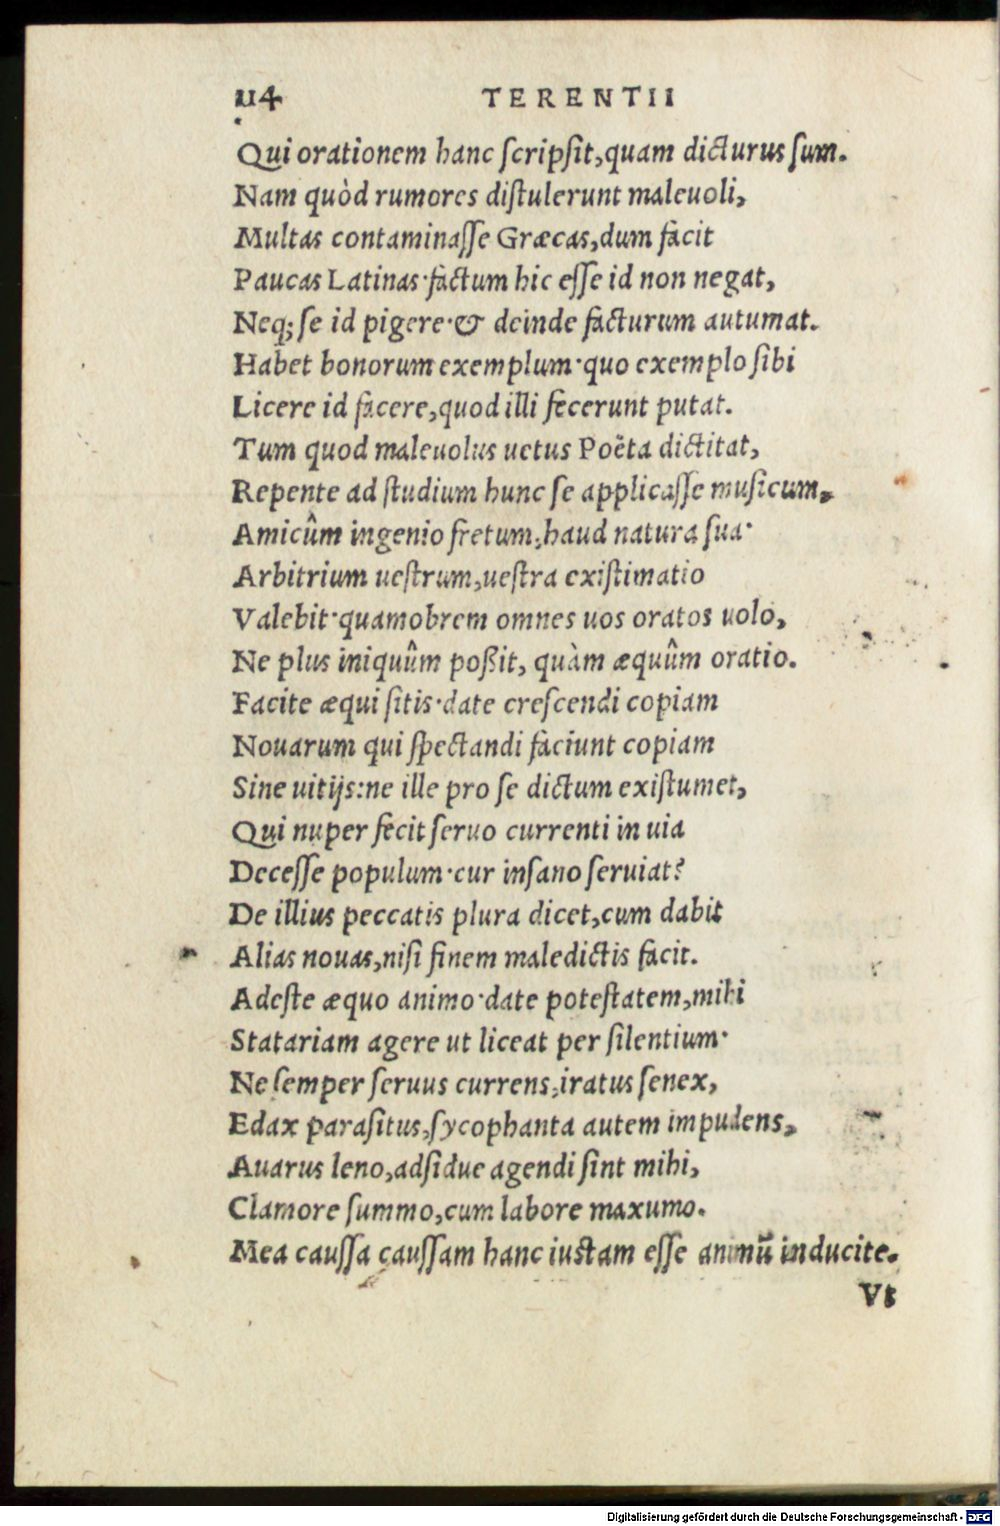 114 TERENTII
Qui orationem hanc ſcripſit,quam dicturus ſum.
Nam quòd rumores diſtulerunt maleuoli,
Multas contaminaſſe Græcas,dum facit
Paucas Latinas·factum hic eſſe id non negat,
Neq; ſe id pigere·& deinde facturum autumat.
Habet bonorum exemplum·quo exemplo ſibi
Licere id facere,quod illi fecerunt putat.
Tum quod maleuolus uetus Poëta dictitat,
Repente ad ſtudium hunc ſe applicaſſe muſicum,
Amicûm ingenio fretum,haud natura ſua·
Arbitrium ueſtrum,ueſtra exiſtimatio
Valebit·quamobrem omnes uos oratos uolo,
Ne plus iniquûm poßit, quàm æquûm oratio.
Facite æqui ſitis·date creſcendi copiam
Nouarum qui ſpectandi faciunt copiam
Sine uitijs:ne ille pro ſe dictum exiſtumet,
Qui nuper fecit ſeruo currenti in uia
Deceſſe populum·cur inſano ſeruiat?
De illius peccatis plura dicet,cum dabit
Alias nouas,niſi finem maledictis facit.
Adeſte æquo animo·date poteſtatem,mihi
Statariam agere ut liceat per ſilentium·
Ne ſemper ſeruus currens,iratus ſenex,
Edax paraſitus,ſycophanta autem impudens,
Auarus leno,adſidue agendi ſint mihi,
Clamore ſummo,cum labore maxumo.
Mea cauſſa cauſſam hanc iuſtam eſſe animū inducite.
Vt
Digitalisierung gefördert durch die Deutsche Forschungsgemeinschaft - DFG